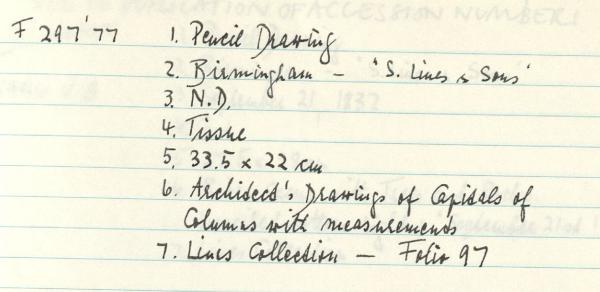 F 297'77 1. Pencil Drawing
2. Birmingham – 'S. Lines & Sons'
3. N.D.
4. Tissue
5. 33.5 x 22 cm
6. Architect's Drawings of Capitals of
Columns with measurements
7. Lines Collection – Folio 97